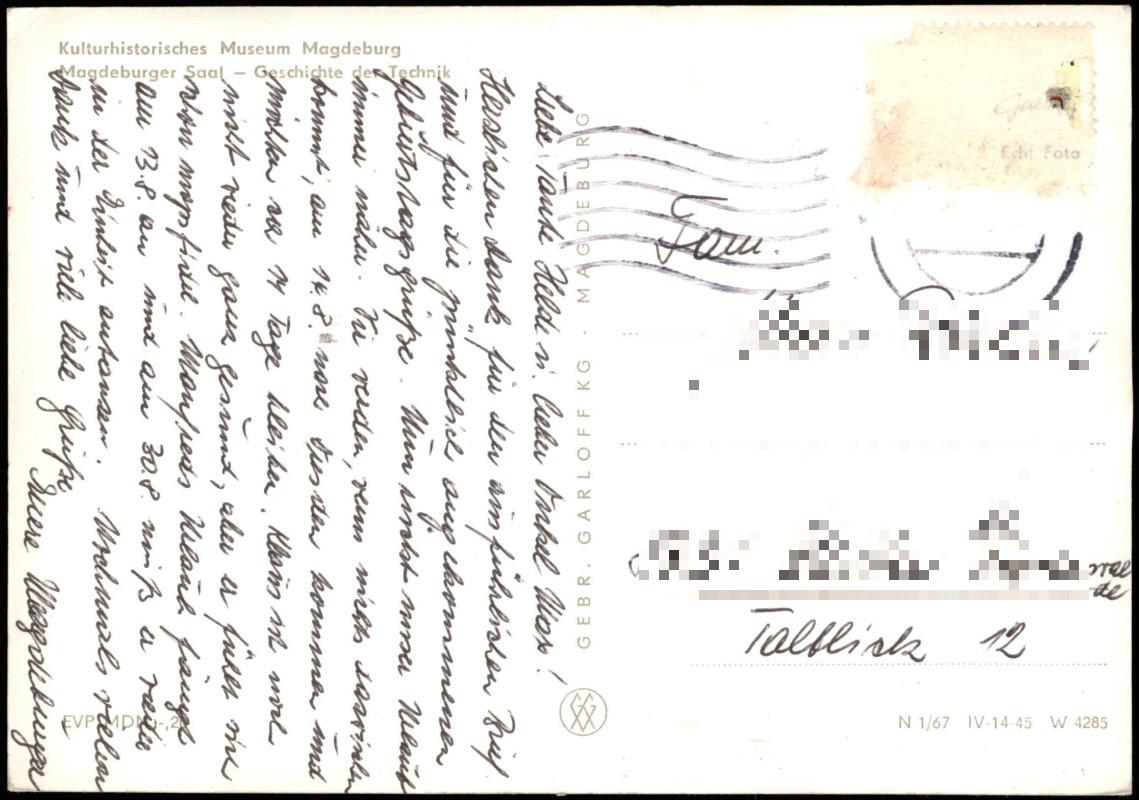 Kulturhistorisches Museum Magdeburg
Magdeburger Saal – Geschichte der Technik
Liebe Tante Helde u. lieber Onkel Max!
Herzlichen Dank für den ausführlichen Brief
und für die pünktlich angekommenen
Geburtstagsgrüße. Nun rückt unser Urlaub
immer näher. Wir werden, wenn nichts dazwischen
kommt, am 14.8. nach Dresden kommen und
wollten ca 14 Tage bleiben. Klaus ist noch
nicht wieder ganz gesund, aber er fühlt sich
schon mopsfidel. Manfreds Urlaub fängt
am 13.8. an und am 30.8. muß er wieder
in der Dienststelle antanzen. Nochmals vielen
Dank und viele liebe Grüße
Eure Magdeburger
GEBR. GARLOFF KG · MAGDEBURG
Echt Foto
Fam.
Talblick 12
EVP MDN -,2
N 1/67 IV-14-45 W 4285